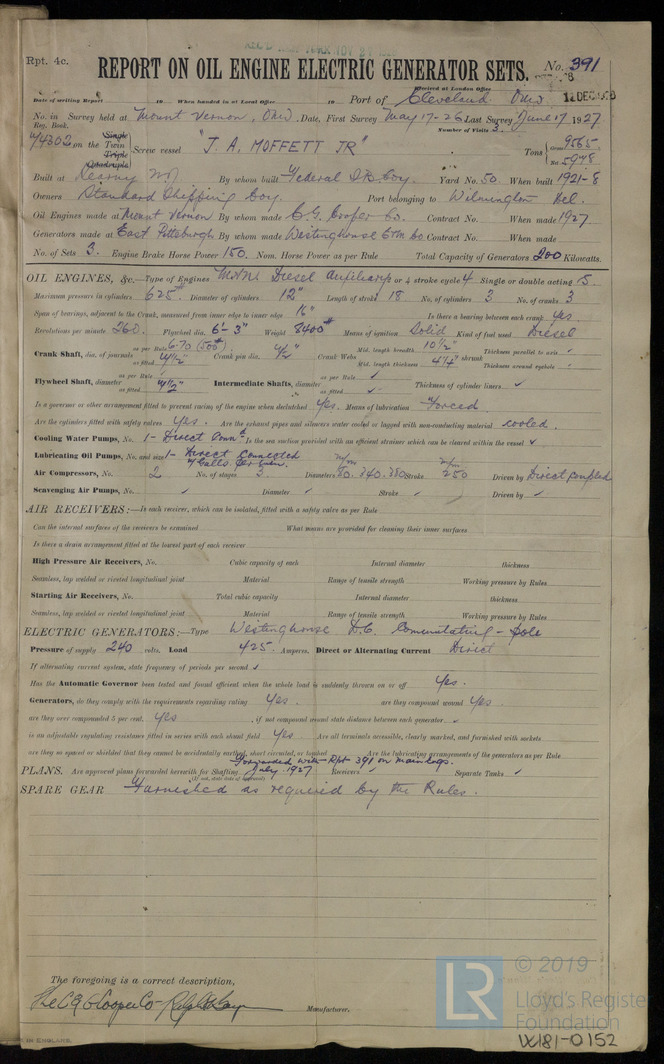 Rpt. 4c.
REPORT ON OIL ENGINE ELECTRIC GENERATOR SETS. No. 391
Received at London Office
Date of writing Report 19 When handed in at Local Office 19 Port of Cleveland Ohio 12 DEC
No. in Survey held at Mount Vernon, Ohio. Date, First Survey May 17-26 Last Survey June 17 1927
Reg. Book. Number of Visits 3
74302 on the Single Twin Triple Quadruple Screw vessel "J. A. MOFFETT JR" Tons Gross 9565 Net 5948
Built at Kearny NJ By whom built Federal S.B. Coy. Yard No. 50. When built 1921-8
Owners Standard Shipping Coy. Port belonging to Wilmington Del.
Oil Engines made at Mount Vernon By whom made C. G. Cooper Co. Contract No. When made 1927.
Generators made at East Pittsburgh By whom made Westinghouse E&M Co Contract No. When made
No. of Sets 3. Engine Brake Horse Power 150. Nom. Horse Power as per Rule Total Capacity of Generators 200 Kilowatts.
OIL ENGINES, &c.—Type of Engines Diesel Auxiliary 2 or 4 stroke cycle 4 Single or double acting S.
Maximum pressure in cylinders 625# Diameter of cylinders 12" Length of stroke 18 No. of cylinders 3 No. of cranks 3
Span of bearings, adjacent to the Crank, measured from inner edge to inner edge 16" Is there a bearing between each crank yes
Revolutions per minute 260. Flywheel dia. 6'-3" Weight 8400# Means of ignition Solid Kind of fuel used Diesel
Crank Shaft, dia. of journals as per Rule 6.70 as fitted Crank pin dia. Crank Webs Mid. length breadth 10 1/2" Mid. length thickness shrunk Thickness parallel to axis ✓ Thickness around eyehole ✓
Flywheel Shaft, diameter as per Rule ✓ as fitted Intermediate Shafts, diameter as per Rule ✓ as fitted ✓ Thickness of cylinder liners ✓
Is a governor or other arrangement fitted to prevent racing of the engine when declutched yes. Means of lubrication Forced
Are the cylinders fitted with safety valves yes. Are the exhaust pipes and silencers water cooled or lagged with non-conducting material cooled.
Cooling Water Pumps, No. 1 - Direct Conn'd Is the sea suction provided with an efficient strainer which can be cleared within the vessel ✓
Lubricating Oil Pumps, No. and size 1 - Direct Connected
Galls. Per Min.
Air Compressors, No. 2 No. of stages 3 Diameters 80. 340. 380 m/m Stroke 250 m/m Driven by Direct coupled
Scavenging Air Pumps, No. ✓ Diameter ✓ Stroke ✓ Driven by ✓
AIR RECEIVERS:—Is each receiver, which can be isolated, fitted with a safety valve as per Rule
Can the internal surfaces of the receivers be examined What means are provided for cleaning their inner surfaces
Is there a drain arrangement fitted at the lowest part of each receiver
High Pressure Air Receivers, No. Cubic capacity of each Internal diameter thickness
Seamless, lap welded or riveted longitudinal joint Material Range of tensile strength Working pressure by Rules
Starting Air Receivers, No. Total cubic capacity Internal diameter thickness
Seamless, lap welded or riveted longitudinal joint Material Range of tensile strength Working pressure by Rules
ELECTRIC GENERATORS:—Type Westinghouse D.C. Commutating - pole
Pressure of supply 240 volts. Load 425. Amperes. Direct or Alternating Current Direct
If alternating current system, state frequency of periods per second ✓
Has the Automatic Governor been tested and found efficient when the whole load is suddenly thrown on or off yes.
Generators, do they comply with the requirements regarding rating yes. are they compound wound yes.
are they over compounded 5 per cent. yes , if not compound wound state distance between each generator ✓
is an adjustable regulating resistance fitted in series with each shunt field yes Are all terminals accessible, clearly marked, and furnished with sockets
are they so spaced or shielded that they cannot be accidentally earthed, short circuited, or touched Are the lubricating arrangements of the generators as per Rule
Forwarded with Rpt 391 on main engs.
PLANS. Are approved plans forwarded herewith for Shafting July 1927 Receivers ✓ Separate Tanks ✓
(If not, state date of approval)
SPARE GEAR Furnished as required by the Rules.
The foregoing is a correct description,
The C & G Cooper Co Manufacturer.
IN ENGLAND.
LR
© 2019
Lloyd's Register
Foundation
W181-0152